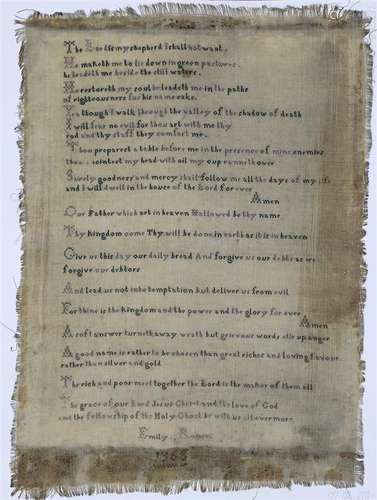 The Lord is my shepherd I shall not want.
He maketh me to lie down in green pastures.
he leadeth me beside the still waters.
He restoreth my soul he leadeth me in the paths
of righteousness for his name sake.
Yea though I walk through the valley of the shadow of death
I will fear no evil for thou art with me thy
rod and thy staff they comfort me.
Thou preparest a table before me in the presence of mine enemies
thou anointest my head with oil my cup runneth over
Surely goodness and mercy shall follow me all the days of my life
and I will dwell in the house of the Lord for ever
Amen
Our Father which art in heaven Hallowed be thy name
Thy kingdom come Thy will be done in earth as it is in heaven
Give us this day our daily bread And forgive us our debts as we
forgive our debtors
And lead us not into temptation but deliver us from evil
For thine is the kingdom and the power and the glory for ever
Amen
A soft answer turneth away wrath but grievous words stir up anger
A good name is rather to be chosen than great riches and loving favour
rather than silver and gold
The rich and poor meet together the Lord is the maker of them all
The grace of our Lord Jesus Christ and the love of God
and the fellowship of the Holy Ghost be with us all evermore
Emily
1868